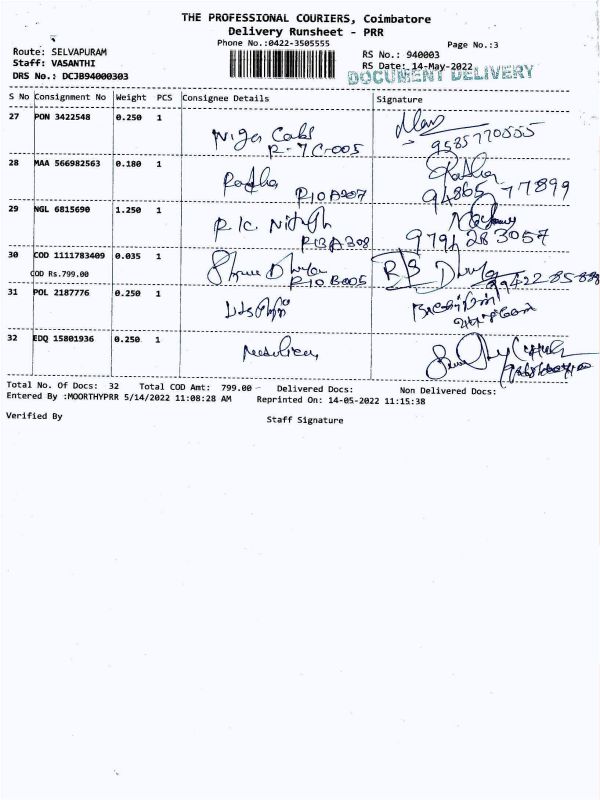 THE PROFESSIONAL COURIERS, Coimbatore
Delivery Runsheet - PRR
Phone No.:0422-3505555
Page No.:3
Route: SELVAPURAM
RS No.: 940003
Staff: VASANTHI
RS Date: 14-May-2022
DRS No.: DCJB94000303
DOCUMENT DELIVERY
S No Consignment No Weight PCS Consignee Details Signature
27 PON 3422548 0.250 1
R-7C-005 9585770555
28 MAA 566982563 0.180 1
Radha Radha
R10A207 94865 77899
29 NGL 6815690 1.250 1
R/C
R13A308
30 COD 1111783409 0.035 1
COD Rs.799.00
R10B005 99422-85888
31 POL 2187776 0.250 1
32 EDQ 15801936 0.250 1
Total No. Of Docs: 32 Total COD Amt: 799.00 Delivered Docs: Non Delivered Docs:
Entered By :MOORTHYPRR 5/14/2022 11:08:28 AM Reprinted On: 14-05-2022 11:15:38
Verified By Staff Signature